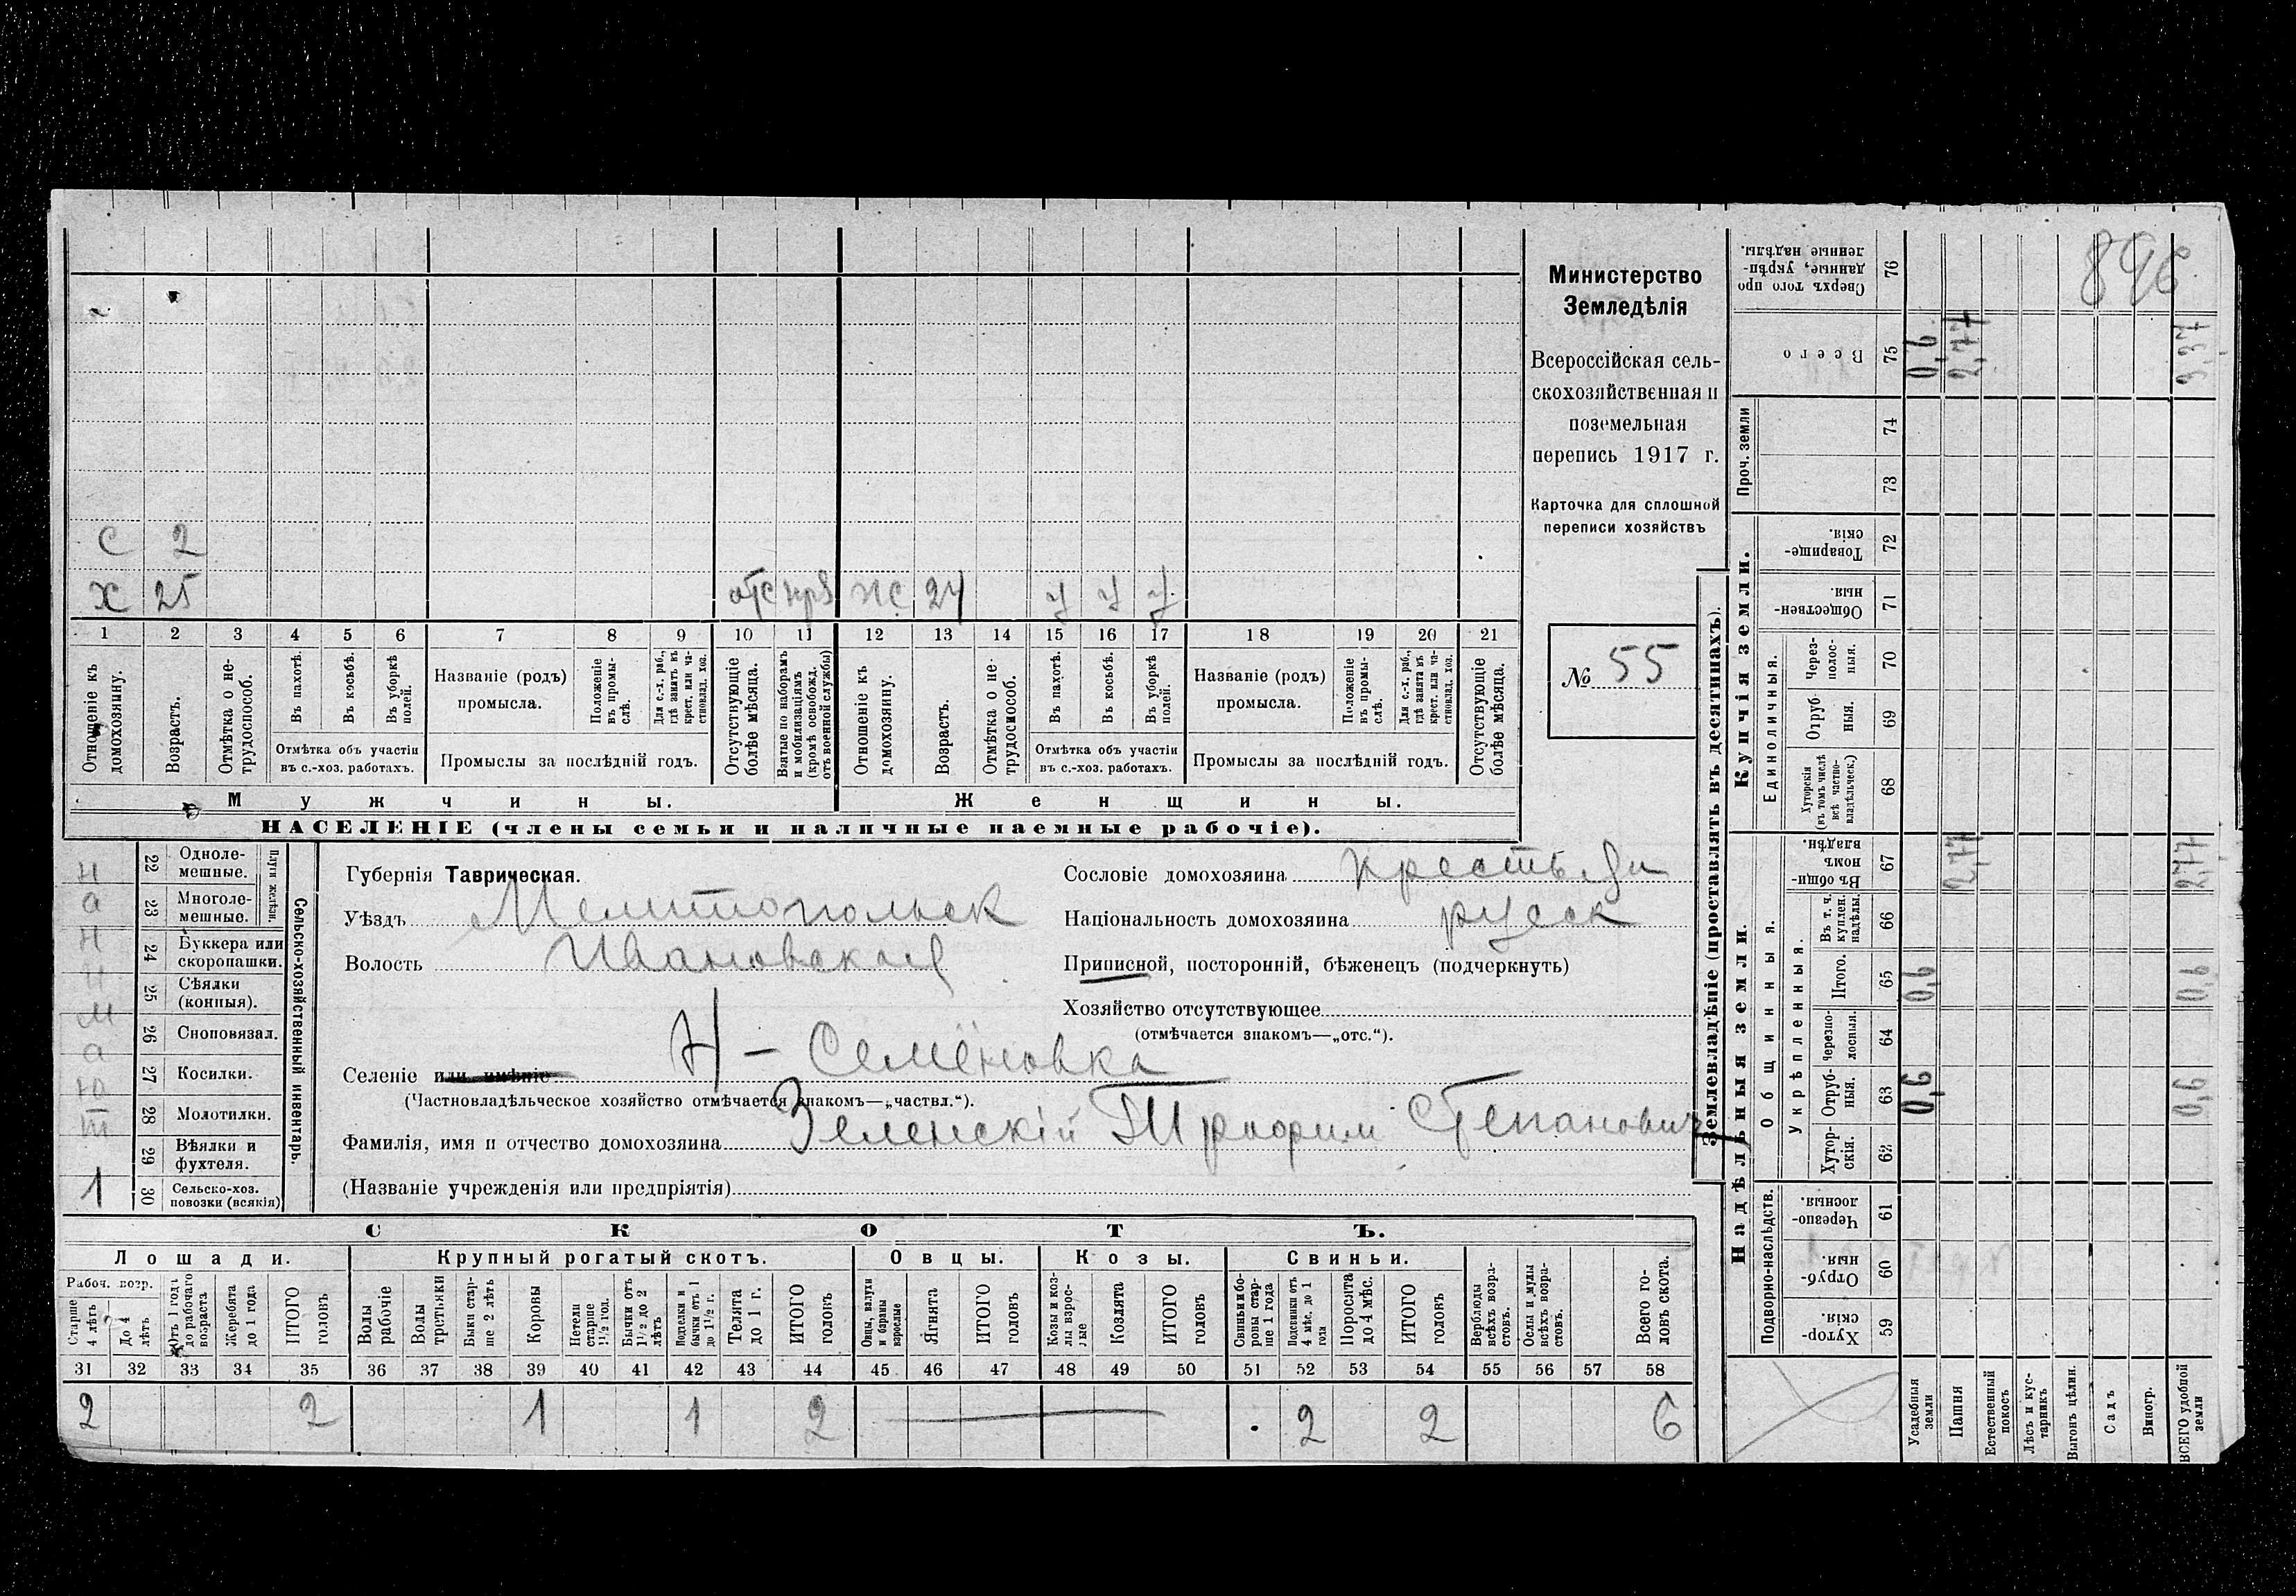 Министерство
Земледѣлія
Всероссійская сель-
скохозяйственная и
поземельная
перепись 1917 г.
Карточка для сплошной
переписи хозяйствъ
№ 55
896
С 2
Х 25 отс 24 у у у
1 2 3 4 5 6 7 8 9 10 11 12 13 14 15 16 17 18 19 20 21
Отношеніе къ домохозяину.
Возрастъ.
Отмѣтка о не-трудоспособ.
Въ пахотѣ.
Въ косьбѣ.
Въ уборкѣ полей.
Отмѣтка объ участіи въ с.-хоз. работахъ.
Названіе (родъ) промысла.
Положеніе въ промы-слѣ.
Для с.-х. раб., гдѣ занятъ въ крест. или ча-стновлад. хоз.
Промыслы за послѣдній годъ.
Отсутствующіе болѣе мѣсяца.
Взятые по наборамъ и мобилизаціямъ (кромѣ освобожд. отъ военной службы)
Отношеніе къ домохозяину.
Возрастъ.
Отмѣтка о не-трудоспособ.
Въ пахотѣ.
Въ косьбѣ.
Въ уборкѣ полей.
Отмѣтка объ участіи въ с.-хоз. работахъ.
Названіе (родъ) промысла.
Положеніе въ промы-слѣ.
Для с.-х. раб., гдѣ занята въ крест. или ча-стновлад. хоз.
Промыслы за послѣдній годъ.
Отсутствующіе болѣе мѣсяца.
Мужчины. Женщины.
НАСЕЛЕНІЕ (члены семьи и наличные наемные рабочіе).
22 Одноле-мешные.
23 Многоле-мешные.
Плуги желѣзн.
24 Буккера или скоропашки.
25 Сѣялки (конныя).
26 Сноповязал.
27 Косилки.
28 Молотилки.
29 Вѣялки и фухтеля.
1 30 Сельско-хоз. повозки (всякія)
Сельско-хозяйственный инвентарь.
Губернія Таврическая.
Уѣздъ Мелитопольск
Волость Ивановская
Селеніе или имѣніе Н - Семёновка
(Частновладѣльческое хозяйство отмѣчается знакомъ—„частвл.“).
Фамилія, имя и отчество домохозяина Зеленскій Трофим Степанович
(Названіе учрежденія или предпріятія)
Сословіе домохозяина крестьян
Національность домохозяина русск
Приписной, посторонній, бѣженецъ (подчеркнуть)
Хозяйство отсутствующее
(отмѣчается знакомъ—„отс.“).
СКОТЪ.
Лошади. Крупный рогатый скотъ. Овцы. Козы. Свиньи.
Рабоч. возр.
Старше 4 лѣтъ
До 4 лѣтъ
Отъ 1 года до рабочаго возраста
Жеребята до 1 года
ИТОГО головъ
Волы рабочіе
Волы третьяки
Быки стар-ше 2 лѣтъ
Коровы
Нетели старше 1½ год.
Бычки отъ 1½ до 2 лѣтъ
Подтелки и бычки отъ 1 до 1½ г.
Телята до 1 г.
ИТОГО головъ
Овцы, валухи и бараны взрослые
Ягнята
ИТОГО головъ
Козы и коз-лы взрос-лые
Козлята
ИТОГО головъ
Свиньи и бо-ровы стар-ше 1 года
Подсвинки отъ 4 мѣс. до 1 года
Поросята до 4 мѣс.
ИТОГО головъ
Верблюды всѣхъ возра-стовъ.
Ослы и мулы всѣхъ возра-стовъ.
Всего го-ловъ скота.
31 32 33 34 35 36 37 38 39 40 41 42 43 44 45 46 47 48 49 50 51 52 53 54 55 56 57 58
2 2 1 1 2 2 2 6
Землевладѣніе (проставлять въ десятинахъ).
Надѣльныя земли. Купчія земли. Проч. земли
Подворно-наслѣдств.
Общинныя.
Укрѣпленныя.
Единоличныя.
Хутор-скія. 59
Отруб-ныя. 60
Черезпо-лосныя. 61
Хутор-скія. 62
Отруб-ныя. 63 0,6 0,6
Черезпо-лосныя. 64
Итого. 65 0,6 0,6
Въ т. ч. куплен. надѣлы. 66
Въ общин-номъ владѣн. 67 2,77 2,77
Хуторскія (въ томъ числѣ всѣ частно-владѣльческ.) 68
Отруб-ныя. 69
Через-полос-ныя. 70
Обществен-ныя. 71
Товарище-скія. 72
73
74
Всего 75 0,6 2,77 3,37
Сверхъ того про-данные, укрѣп-ленные надѣлы. 76
Усадебныя земли
Пашня
Естественный покосъ
Лѣсъ и кус-тарникъ
Выгонъ цѣлин.
Садъ
Виногр.
ВСЕГО удобной земли